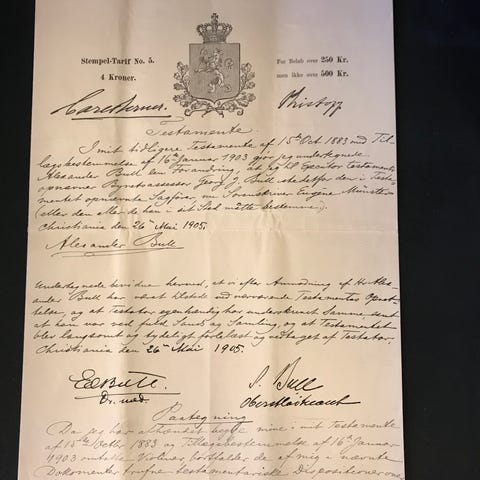 Stempel-Tarif No. 5.
4 Kroner.
For Beløb over 250 Kr.
men ikke over 500 Kr.
Testamente.
I mit tidligere Testamente af 15de Oct 1883 med Til-
lægsbestemmelse af 16de Januar 1903 gjør jeg undertegnede
Alexander Bull den Forandring, at jeg til Executor testamenti
opnævner Byretsassessor Georg J. Bull istedetfor den i Testa-
mentet opnævnte Sagfører, nu Sorenskriver Eugène Münster
(eller den eller de han i sit Sted måtte bestemme).
Christiania den 26de Mai 1905.
Alexander Bull
Undertegnede bevidne herved, at vi efter Anmodning af Hr. Alex-
ander Bull har været tilstede ved nærværende Testamentes Opret-
telse, og at Testator egenhændig har underskrevet Samme, samt
at han var ved fuld Sands og Samling, og at Testamentet
blev langsomt og tydeligt forelæst og vedtaget af Testator.
Christiania den 26de Mai 1905.
Ed Bull.
Dr. med.
S. Bull
Oberstløitnant
Paategning
Da jeg har afhændet begge mine i mit Testamente
af 15de Octbr 1883 og Tillægsbestemmelse af 16de Januar
1903 omtalte Violiner, bortfalder de af mig i nævnte
Dokumenter trufne testamentariske Dispositioner over